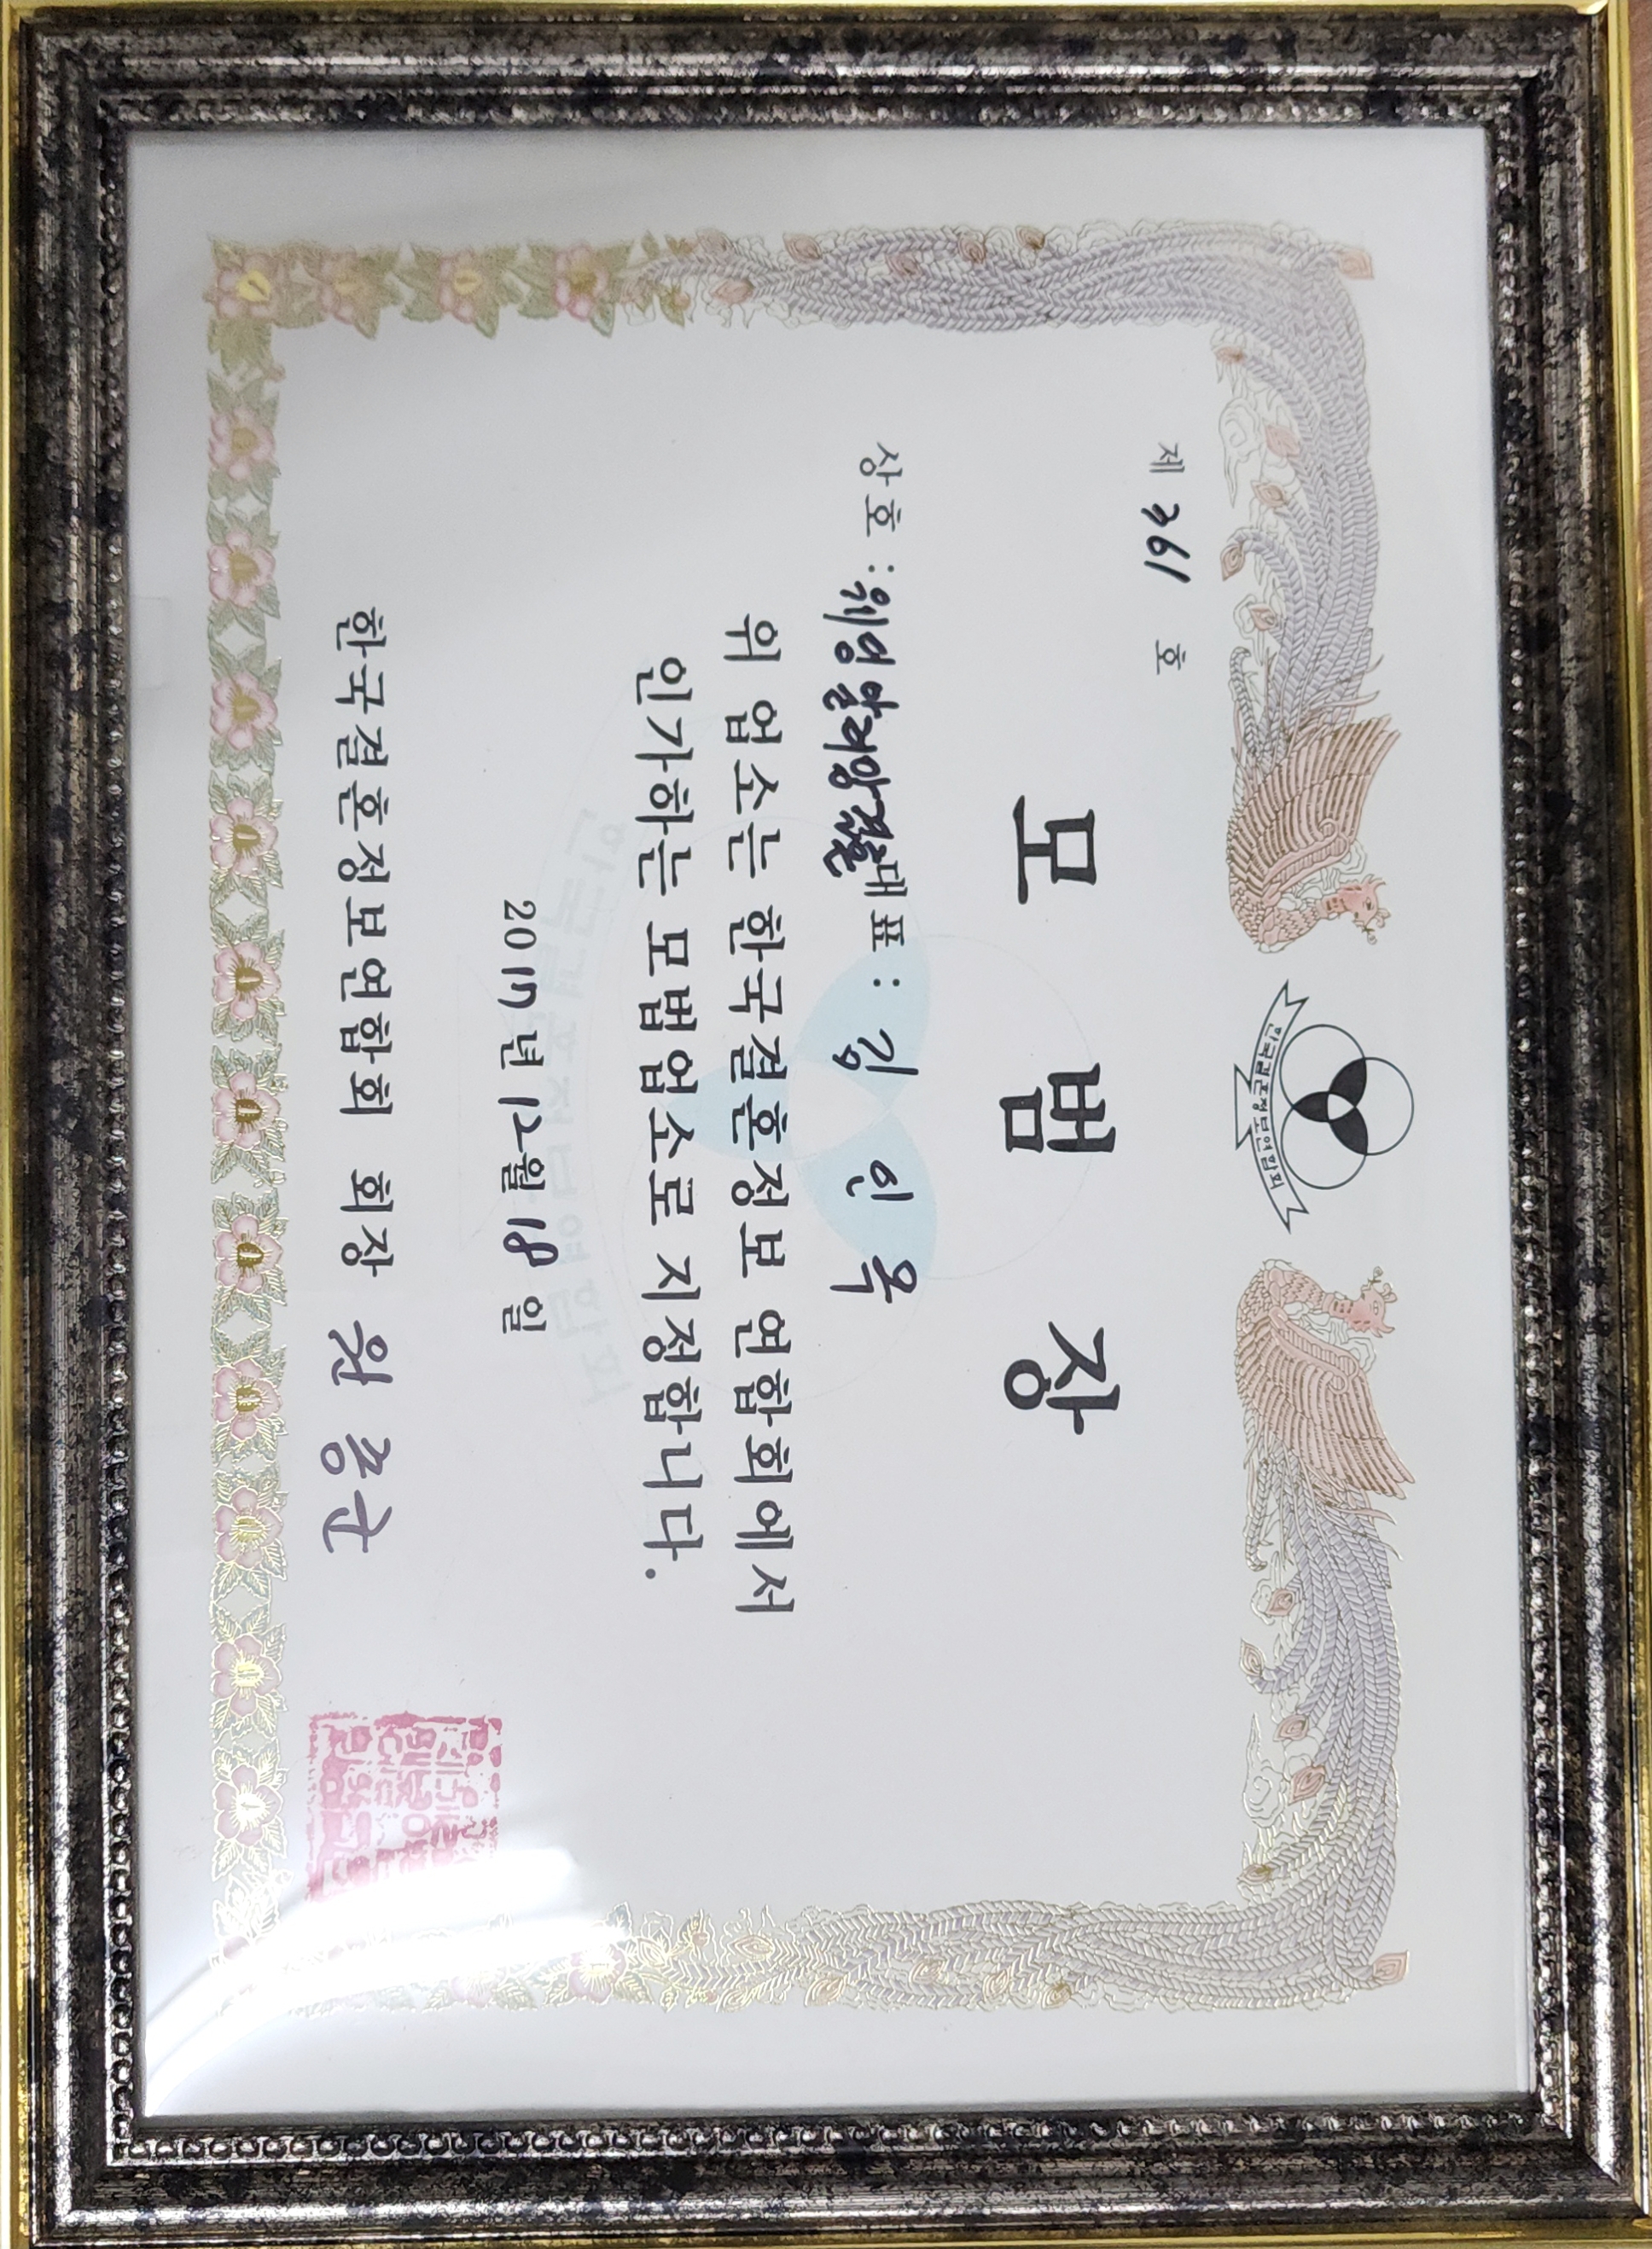 한국결혼정보연합회
제 361 호
모 범 장
상호 : 대표 : 김 인 옥
위 업소는 한국결혼정보 연합회에서
인가하는 모범업소로 지정합니다.
2017년 12월 18일
한국결혼정보연합회 회장 원종군